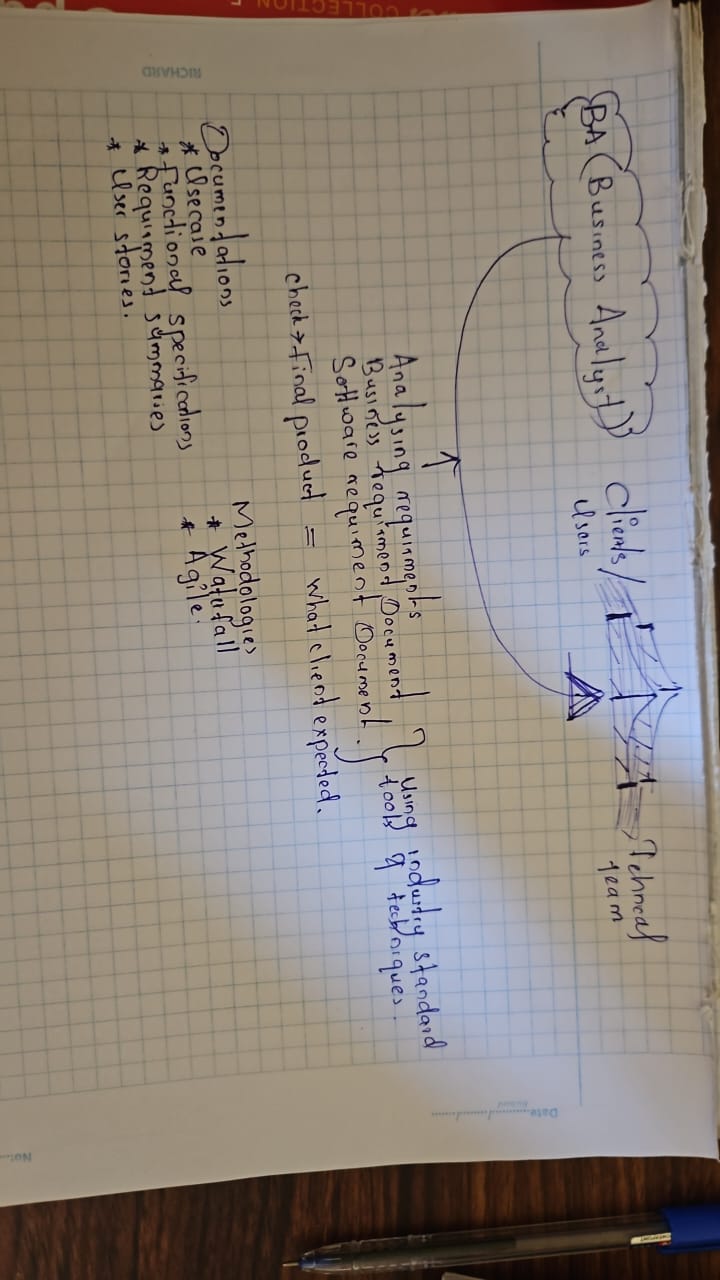 BA (Business Analyst)
Clients/
Users
Tehnical
team
Analysing requirments
Business requirment Document
Software requiment Document.
Using industry standard
tools & techniques.
check → Final product = what client expected.
Documentations
* Usecase
* Functional specifications
* Requirment summaries
* User stories.
Methodologies
* Waterfall
* Agile.
Date
RICHARD
No:
COLLECTION